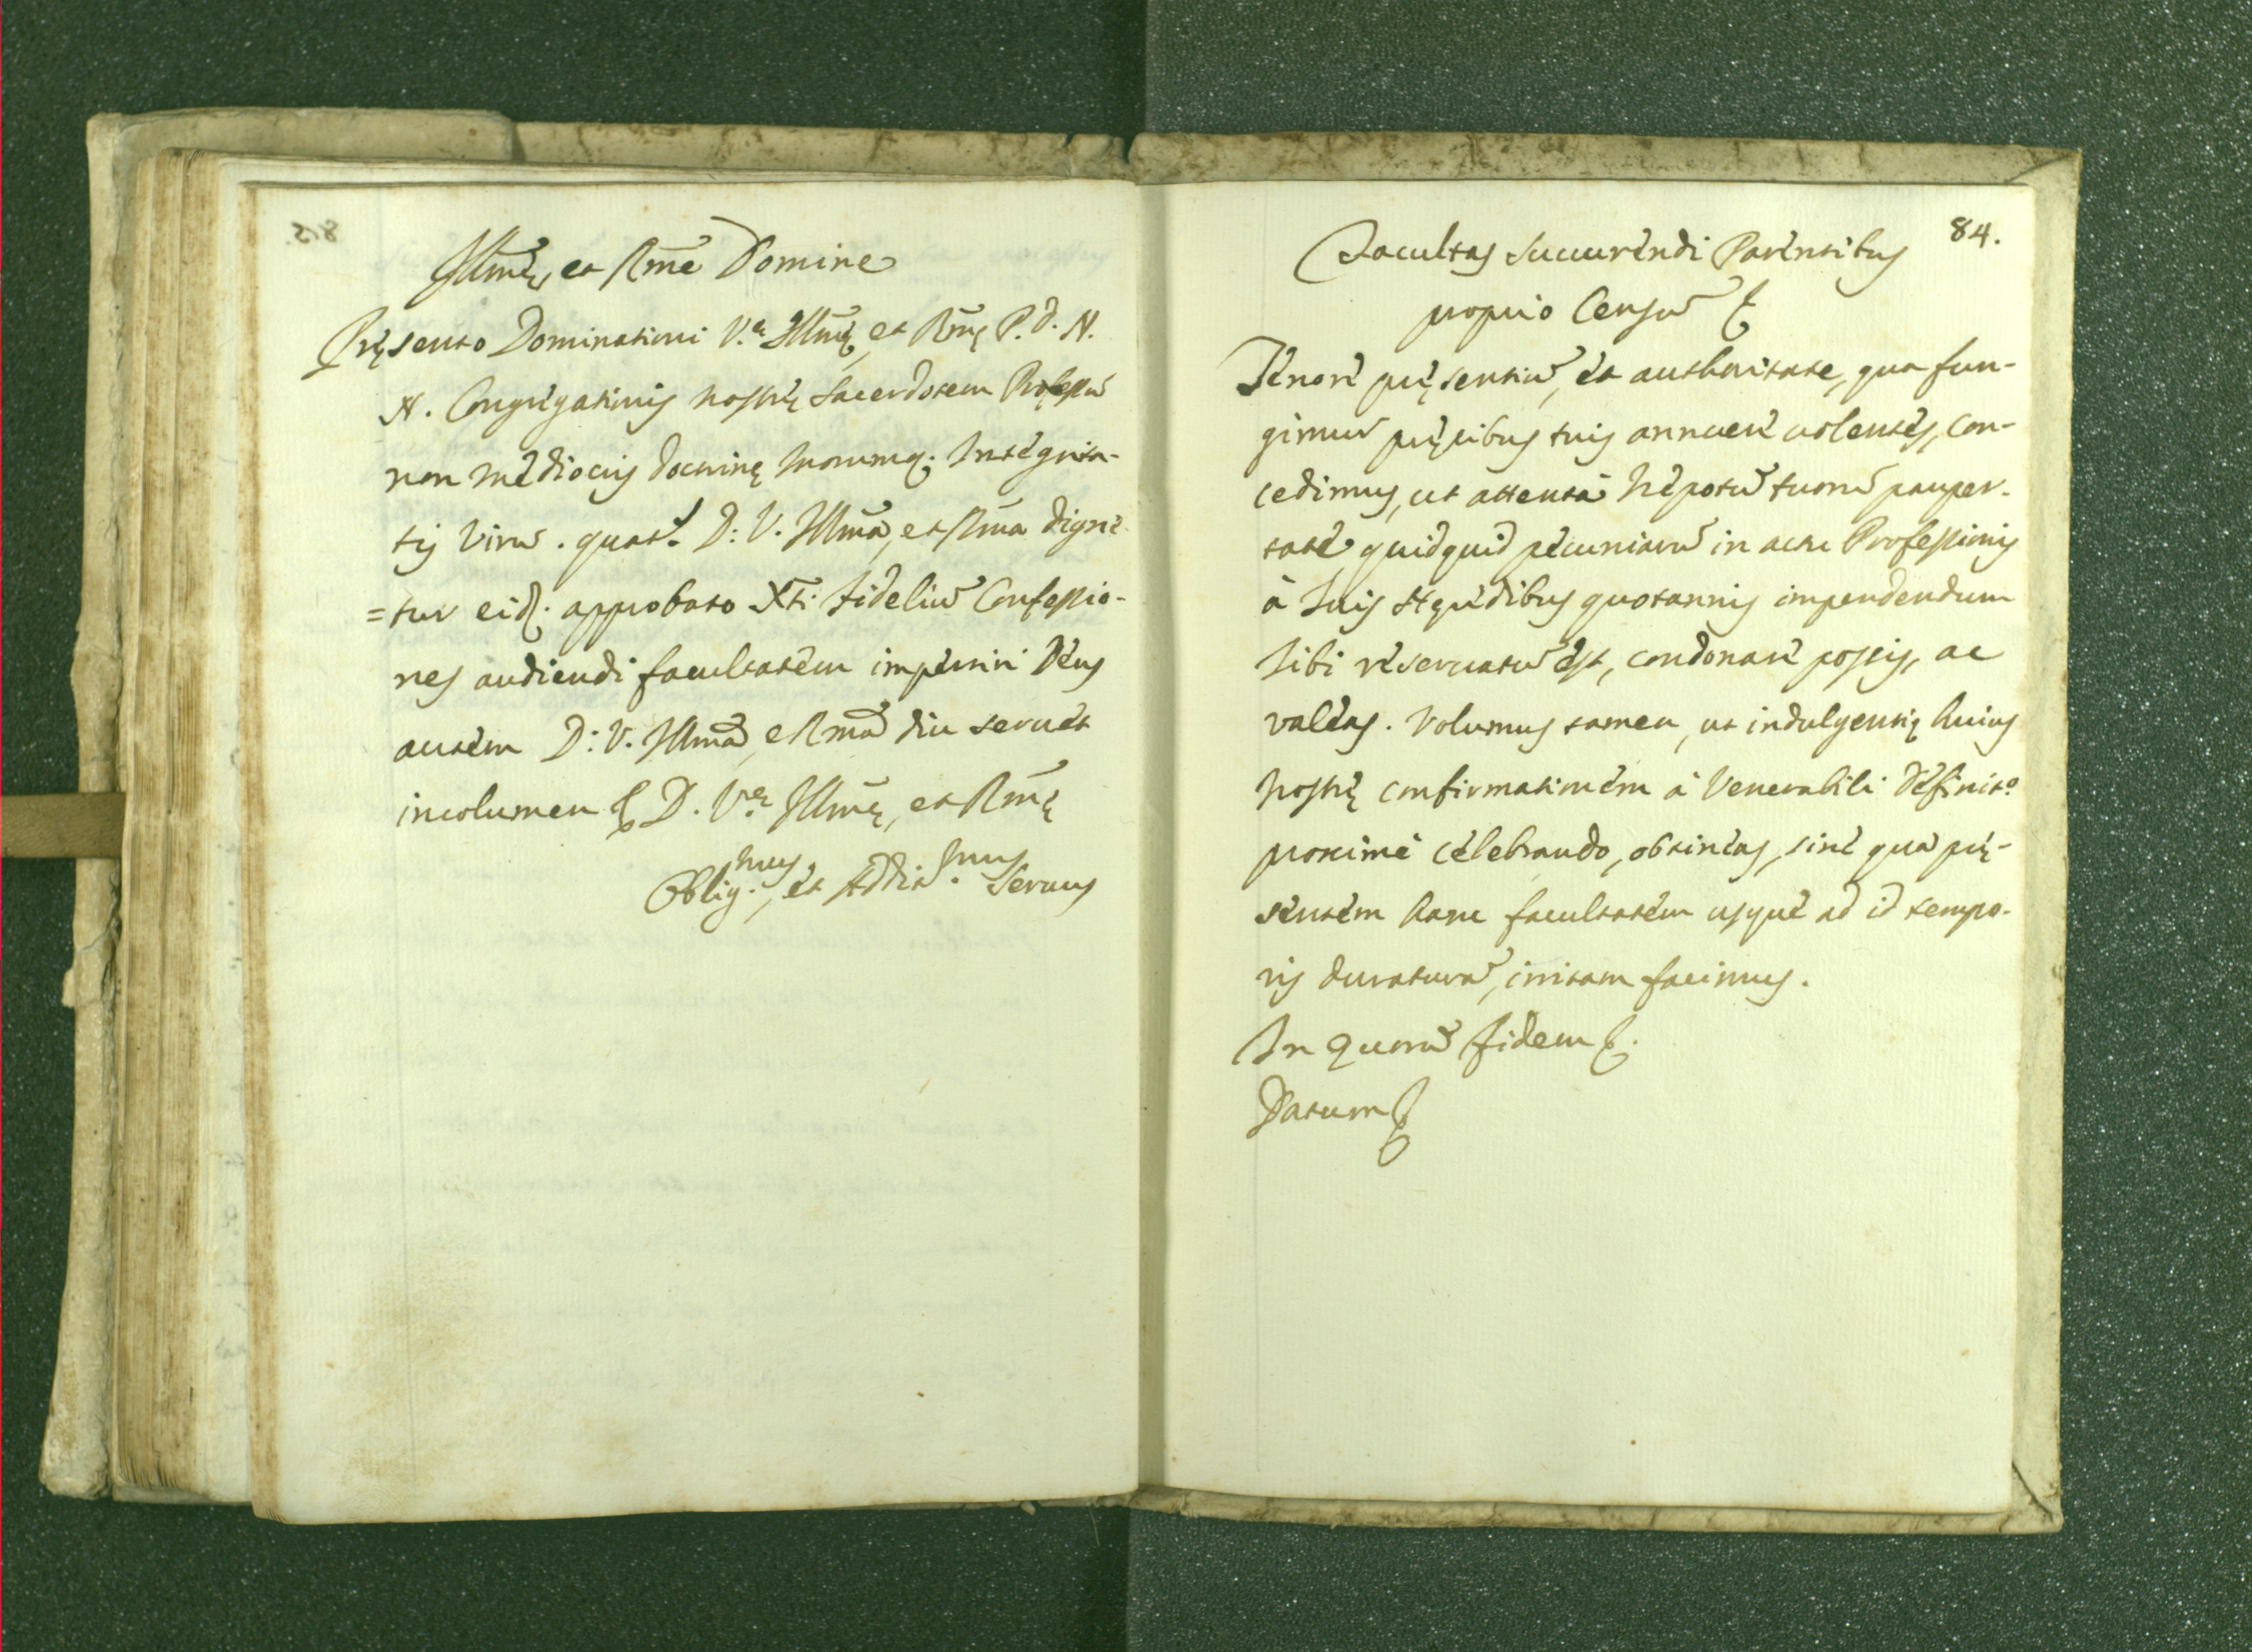 Illm̃e, et Rm̃e Domine
Pręsento Dominationi V.ę Illm̃ę, et Rm̃ę P. D. N.
N. Congregationis nostrę Sacerdotem Professũ
non mediocris doctrinę morumq; Integrita-
tis Virũ. D: V. Illm̃a, et Rm̃a digne
=tur eid; approbato Xti: fideliũ Confessio-
nes audiendi facultatem impertiri Deus
autem D: V. Illm̃ã, e Rm̃ã diu servet
incolumen D. V.ę Illm̃ę, et Rm̃ę
Oblig.mus, et Addit.mus Servus
84.
Facultas succurrendi Parentibus
proprio Censũ
Tenore pręsentiũ, et authoritate, qua fun-
gimur pręcibus tuis annuere volentes, con-
cedimus, ut attentà Nepotũ tuorũ pauper-
tate, quidquid pecuniarũ in actu Professionis
à suis Hęredibus quotannis impendendum
sibi reservatũ est, condonare possis, ac
valeas. Volumus tamen, ut indulgentię huius
nostrę confirmationem à Venerabili Definit.o
proximè celebrando, obtineas, sine qua prę-
sentem hanc facultatem usque ad id tempo-
ris duraturã, irritam facimus.
In quorũ fidem
Datum